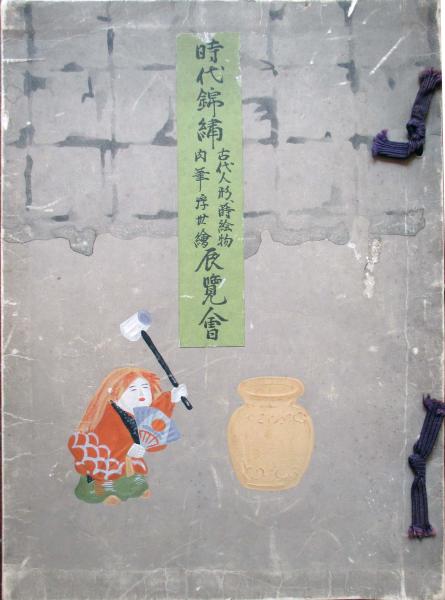 時代錦繡
古代人形、蒔絵物
肉筆浮世繪
展覽會